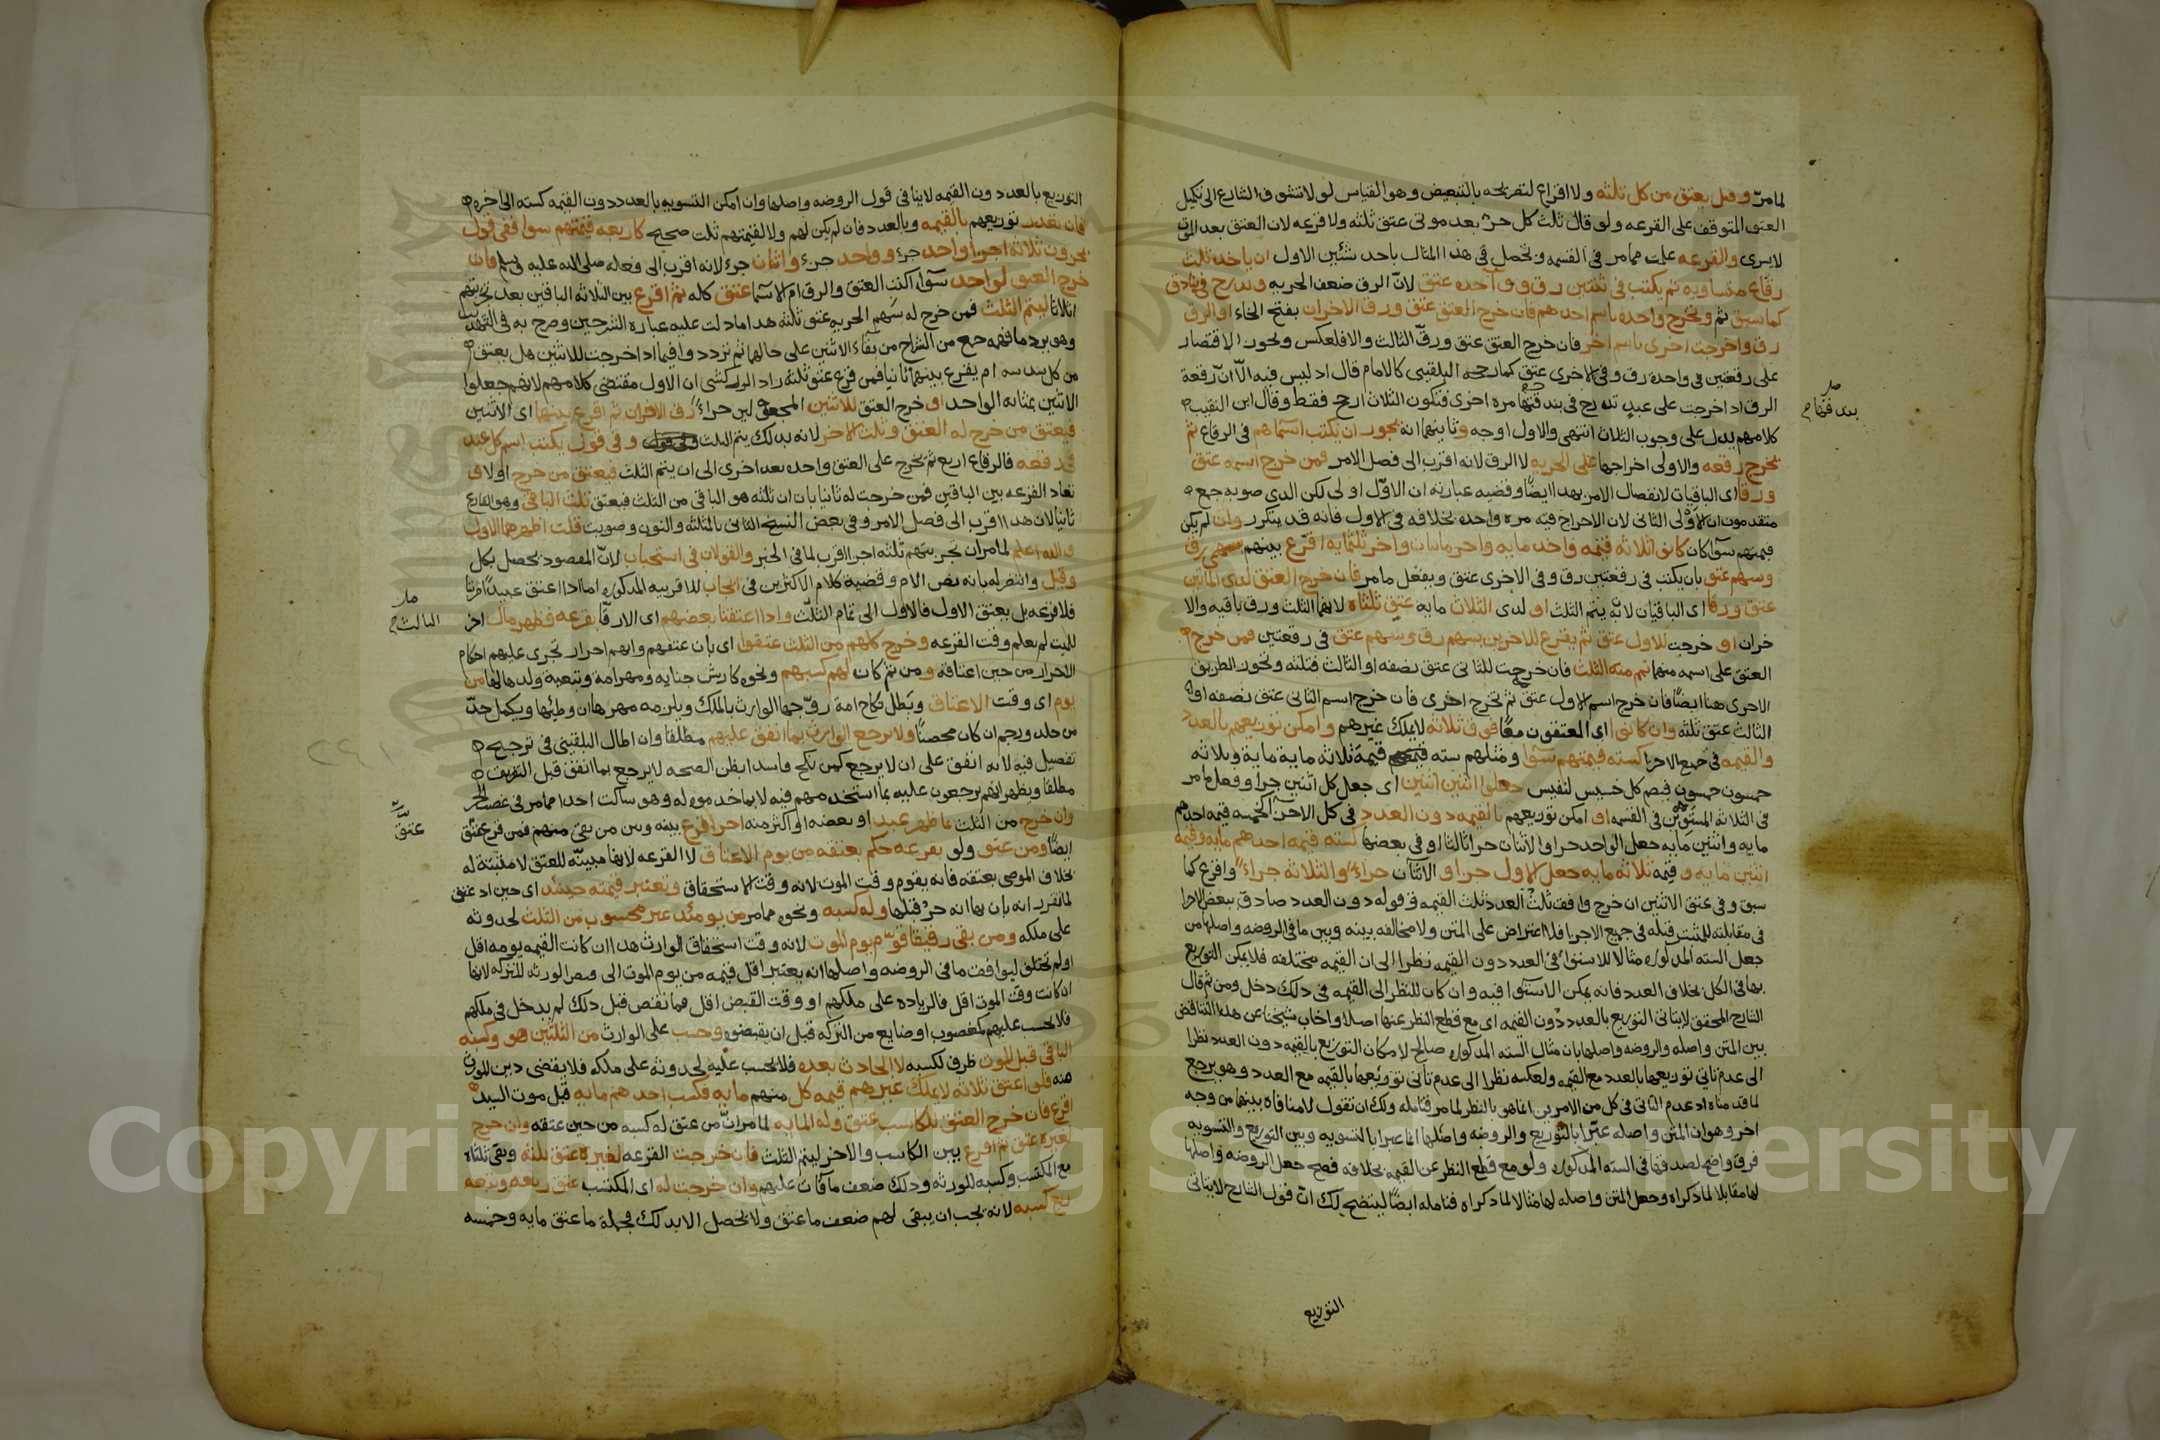 لما مر وقيل يعتق من كل ثلثه ولا اقراع لتصريحه بالتبعيض وهو القياس لولا تشوف الشارع الى تكميل
العتق المتوقف على القرعه ولو قال ثلث كل حر بعد موتى عتق ثلثه ولا قرعه لان العتق بعد الموت
لا يسرى والقرعه علمت مما مر فى القسمه وتحصل فى هذا المثال باحد شيئين الاول ان ياخذ ثلث
رقاع متساويه ثم يكتب فى ثنتين رق و واحده عتق لان الرق ضعف الحريه وتدرج فى بنادق
كما سبق ثم وتخرج واحده باسم احدهم فان خرج العتق عتق ورق الاخران بفتح الخاء او الرق
رق واخرجت اخرى باسم اخر فان خرج العتق عتق ورق الثالث والا فلعكس ويجوز الاقتصار
على رقعتين فى واحدة رق وفى الاخرى عتق كما رجحه البلقينى كالامام قال اذ ليس فيه الا ان رقعة
الرق اذا اخرجت على عبد تدرج فى بندقتها مره اخرى فتكون الثلاث ارجح فقط وقال ابن النقيب
كلامهم يدل على وجوب الثلاث انتهى والاول اوجه وثانيهما انه يجوز ان يكتب اسماهم فى الرقاع ثم
تخرج رقعه والاولى اخراجها على الحريه لا الرق لانه اقرب الى فصل الامر فمن خرج اسمه عتق
ورقا اى الباقيات لانفصال الامر بهذا ايضا وقضيه عبارته ان الاول اولى لكن الذى صوبه جمع
متقدمون ان الاولى الثانى لان الاخراج فيه مره واحده بخلافه فى الاول فانه قد يتكرر وان لم يكن
قيمتهم سوا كان كانوا ثلاثه قيمه واحد مايه واخر مايتان واخر ثلثمايه اقرع بينهم بسهمى رق
وسهم عتق بان يكتب فى رقعتين رق وفى الاخرى عتق ويفعل ما مر فان خرج العتق لذى المايتين
عتق ورقا اى الباقيان لانه يتم الثلث او لذى الثلاث مايه عتق ثلثاه لانهما الثلث ورق باقيه والا
خران او خرجت للاول عتق ثم يقرع للاخرين بسهم رق وسهم عتق فى رقعتين فمن خرج
العتق على اسمه منهما تمم منه الثلث فان خرجت للثانى عتق نصفه او الثالث فثلثه ويجوز الطريق
الاخرى هنا ايضا فان خرج اسم الاول عتق ثم تخرج اخرى فان خرج اسم الثانى عتق نصفه او
الثالث عتق ثلثه وان كانوا اى المعتقون معا فوق ثلاثه لا يملك غيرهم وامكن توزيعهم بالعدد
والقيمه فى جميع الاجزا كسته قيمتهم سوا ومثلهم سته قيمة ثلاثه ماية ماية وثلاثه
خمسون خمسون فيضم كل خسيس لنفيس جعلوا اثنين اثنين اى جعل كل اثنين جزا وفعل ما مر
فى الثلاثه المستوين فى القسمه او امكن توزيعهم بالقيمه دون العدد فى كل الاجزا كخمسه قيمة احدهم
مايه واثنين مايه جعل الواحد جزا والاثنان جزا ثالثا او فى بعضها كسته قيمه احدهم مايه وقيمه
اثنين مايه وقيمه ثلاثه مايه جعل الاول جزا والاثنان جزاء والثلاثه جزاء واقرع كما
سبق وفى عتق الاثنين ان خرج وافق ثلث العدد ثلث القيمه فقوله دون العدد صادق ببعض الاجزا
فى مقابلته للمثبت قبله فى جميع الاجزا فلا اعتراض على المتن ولا مخالفه بينه وبين ما فى الروضه واصلها من
جعل السته المذكوره مثالا للاستوا فى العدد دون القيمه نظرا الى ان القيمه مختلفه فلا يمكن التوزيع
بها فى الكل بخلاف العدد فانه يمكن الاستوا فيه وان كان للنظر الى القيمه فى ذلك دخل ومن ثم قال
الشارح المحقق لا يتاتى التوزيع بالعدد دون القيمه اى مع قطع النظر عنها اصلا واجاب شيخنا عن هذا التناقض
بين المتن واصله والروضه واصلها بان مثال السته المذكوره صالح لامكان التوزيع بالقيمه دون العدد نظرا
الى عدم تاتى توزيعها بالعدد مع القيمه ولعكسه نظرا الى عدم تاتى توزيعها بالقيمه مع العدد وهو يرجع
لما قدمناه اذ عدم التاتى فى كل من الامرين انما هو بالنظر لما مر فتامله ولك ان تقول لا منافاة بينهما من وجه
اخر وهو ان المتن واصله عبرا بالتوزيع والروضه واصلها انما عبرا بالتسويه وبين التوزيع والتسويه
فرق واضح لصدقها فى السته المذكوره ولو مع قطع النظر عن القيمه بخلافه فصح جعل الروضه واصلها
لها مقابلا لما ذكراه وجعل المتن واصله لها مثالا لما ذكراه فتامله ايضا ليتضح لك ان قول الشارح لا يتاتى
التوزيع
التوزيع بالعدد دون القيمه لا ينافى قول الروضه واصلها وان امكن التسويه بالعدد دون القيمه كسته الى اخره
فان تعذر توزيعهم بالقيمه وبالعدد فان لم يكن لهم ولا لقيمتهم ثلث صحيح كاربعه قيمتهم سوا ففى قول
يجزون ثلاثة اجزا واحد جزء وواحد جزء واثنان جزء لانه اقرب الى فعله صلى الله عليه وسلم فان
خرج العتق لواحد سوآ اكتب العتق والرق ام الاسما عتق كله ثم اقرع بين الثلاثه الباقين بعد تجزيتهم
اثلاثا ليتم الثلث فمن خرج له سهم الحريه عتق ثلثه هذا ما دلت عليه عباره الشرحين وصرح به فى التهذيب
وهو يرد ما فهمه جمع من الشراح من بقاء الاثنين على حالهما ثم تردد وا فيما اذا خرجت للاثنين هل يعتق
من كل سدسه ام يقرع بينهما ثانيا فمن قرع عتق ثلثه زاد الزركشى ان الاول مقتضى كلامهم لانهم جعلوا
الاثنين بمثابه الواحد او خرج العتق للاثنين المجعولين جزاء رق الاخران ثم اقرع بينهما اى الاثنين
فيعتق من خرج له العتق وثلث الاخر لانه بذلك يتم الثلث وفى قول يكتب اسم كل عبد
فى رقعه فالرقاع اربع ثم يخرج على العتق واحده بعد اخرى الى ان يتم الثلث فيعتق من خرج اولا و
تعاد القرعه بين الباقين فمن خرجت له ثانيا بان ان ثلثه هو الباقى من الثلث فيعتق ثلث الباقى وهو القارع
ثانيا لان هذا اقرب الى فصل الامر وفى بعض النسخ الثانى بالمثلثه والنون وصوبت قلت اظهرهما الاول
والله اعلم لما مر ان تجزيتهم ثلثه اجزا اقرب لما فى الخبر والقولان فى استحباب لان المقصود يحصل بكل
وقيل وانتصر له بانه نص الام وقضية كلام الاكثرين فى ايجاب للاقربيه المذكوره اما اذا اعتق عبيدا مرتبا
فلا قرعه بل يعتق الاول فالاول الى تمام الثلث واذا اعتقنا بعضهم اى الارقا بقرعه فظهر مال اخر
للميت لم يعلم وقت القرعه وخرج كلهم من الثلث عتقوا اى بان عتقهم وانهم احرار تجرى عليهم احكام
الاحرار من حين اعتاقه ومن ثم كان لهم كسبهم ونحوه كارش جنايه ومهر امة وتتبعه ولدها لها من
يوم اى وقت الاعتاق وبطل نكاح امة زوجها الوارث بالملك ويلزمه مهرها ان وطئها ويكمل حد
من جلد ورجم ان كان محصنا ولا يرجع الوارث بما انفق عليهم مطلقا وان اطال البلقينى فى ترجيح
تفصيل فيه لانه انفق على ان لا يرجع كمن نكح فاسدا بظن الصحه لا يرجع بما انفق قبل التفريق
مطلقا ويظهر انهم يرجعون عليه بما استخدمهم فيه لا بما خدموه له وهو ساكت اخذا مما مر فى غصب الحر
وان خرج من الثلث بما ظهر عبد او بعضه او اكثر منه اخر اقرع بينه وبين من بقى منهم فمن قرع عتق
ايضا ومن عتق ولو بقرعه حكم بعتقه من يوم الاعتاق لا القرعه لانها مبينه للعتق لا مثبتة له
بخلاف الموصى بعتقه فانه يقوم وقت الموت لانه وقت الاستحقاق وتعتبر قيمته حينئذ اى حين اذ عتق
لما تقرر انه بان بها انه حر قبلها وله كسبه ونحوه مما مر من يومئذ غير محسوب من الثلث لحدوثه
على ملكه ومن بقى رقيقا قوم يوم الموت لانه وقت استحقاق الوارث هذا ان كانت القيمه يومه اقل
او لم تختلف ليوافق ما فى الروضه واصلها انه يعتبر اقل قيمه من يوم الموت الى قبض الورثه للتركه لانها
ان كانت وقت الموت اقل فالزياده على ملكهم او وقت القبض اقل فما نقص قبل ذلك لم يدخل فى ملكهم
فلا يحسب عليهم كمغصوب او ضايع من التركه قبل ان يقبضوه وحسب على الوارث من الثلثين هو وكسبه
الباقى قبل الموت ظرف لكسبه لا الحادث بعده فلا يحسب عليه لحدوثه على ملكه فلا يقضى دين المورث
منه فلو اعتق ثلاثه لا يملك غيرهم قيمه كل منهم مايه فكسب احدهم مايه قبل موت السيد
اقرع فان خرج العتق للكاسب عتق وله المايه لما مر ان من عتق له كسبه من حين عتقه وان خرج
لغيره عتق ثم اقرع بين الكاسب والاخر ليتم الثلث فان خرجت القرعه لغيره عتق ثلثه وبقى ثلثاه
مع المكتسب وكسبه للورثه وذلك ضعف ما فات عليهم وان خرجت له اى المكتسب عتق ربعه وتبعه
ربع كسبه لانه يجب ان يبقى لهم ضعف ما عتق ولا يحصل الا بذلك فجملة ما عتق مايه وخمسه
عتق
Copyright © King Saud University